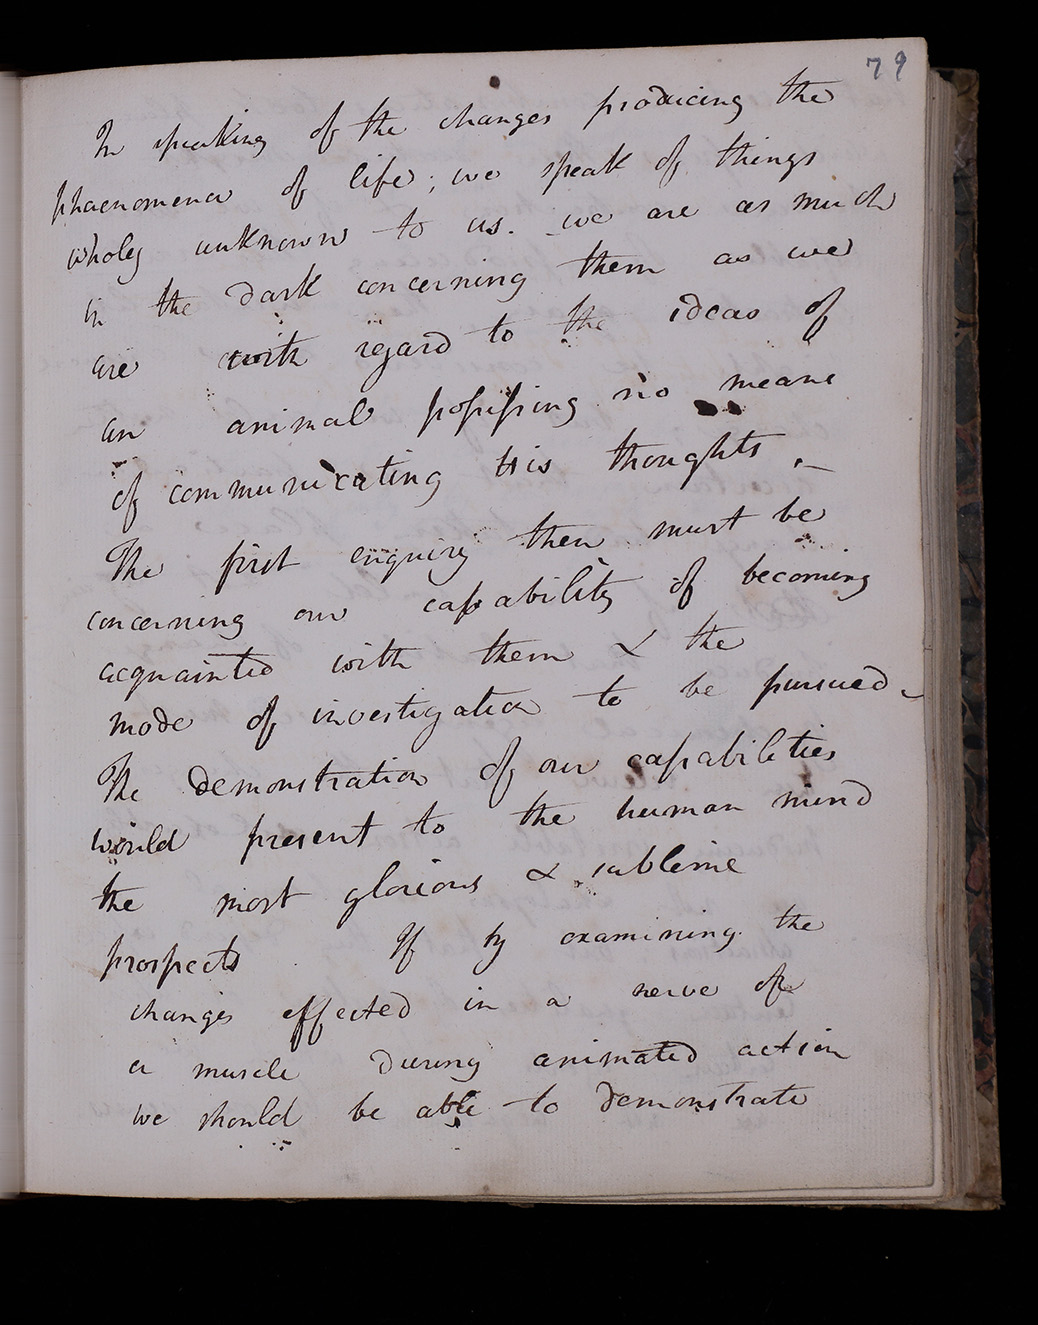 79
In speaking of the changes producing the
phaenomena of life; we speak of things
wholy unknown to us. we are as much
in the dark concerning them as we
are with regard to the ideas of
an animal possessing no means
of communicating his thoughts. –
The first enquiry then must be
concerning our capability of becoming
acquainted with them & the
mode of investigation to be pursued –
The demonstration of our capabilities
would present to the human mind
the most glorious & sublime
prospects. If by examining the
changes effected in a nerve or
a muscle during animated action
we should be able to demonstrate